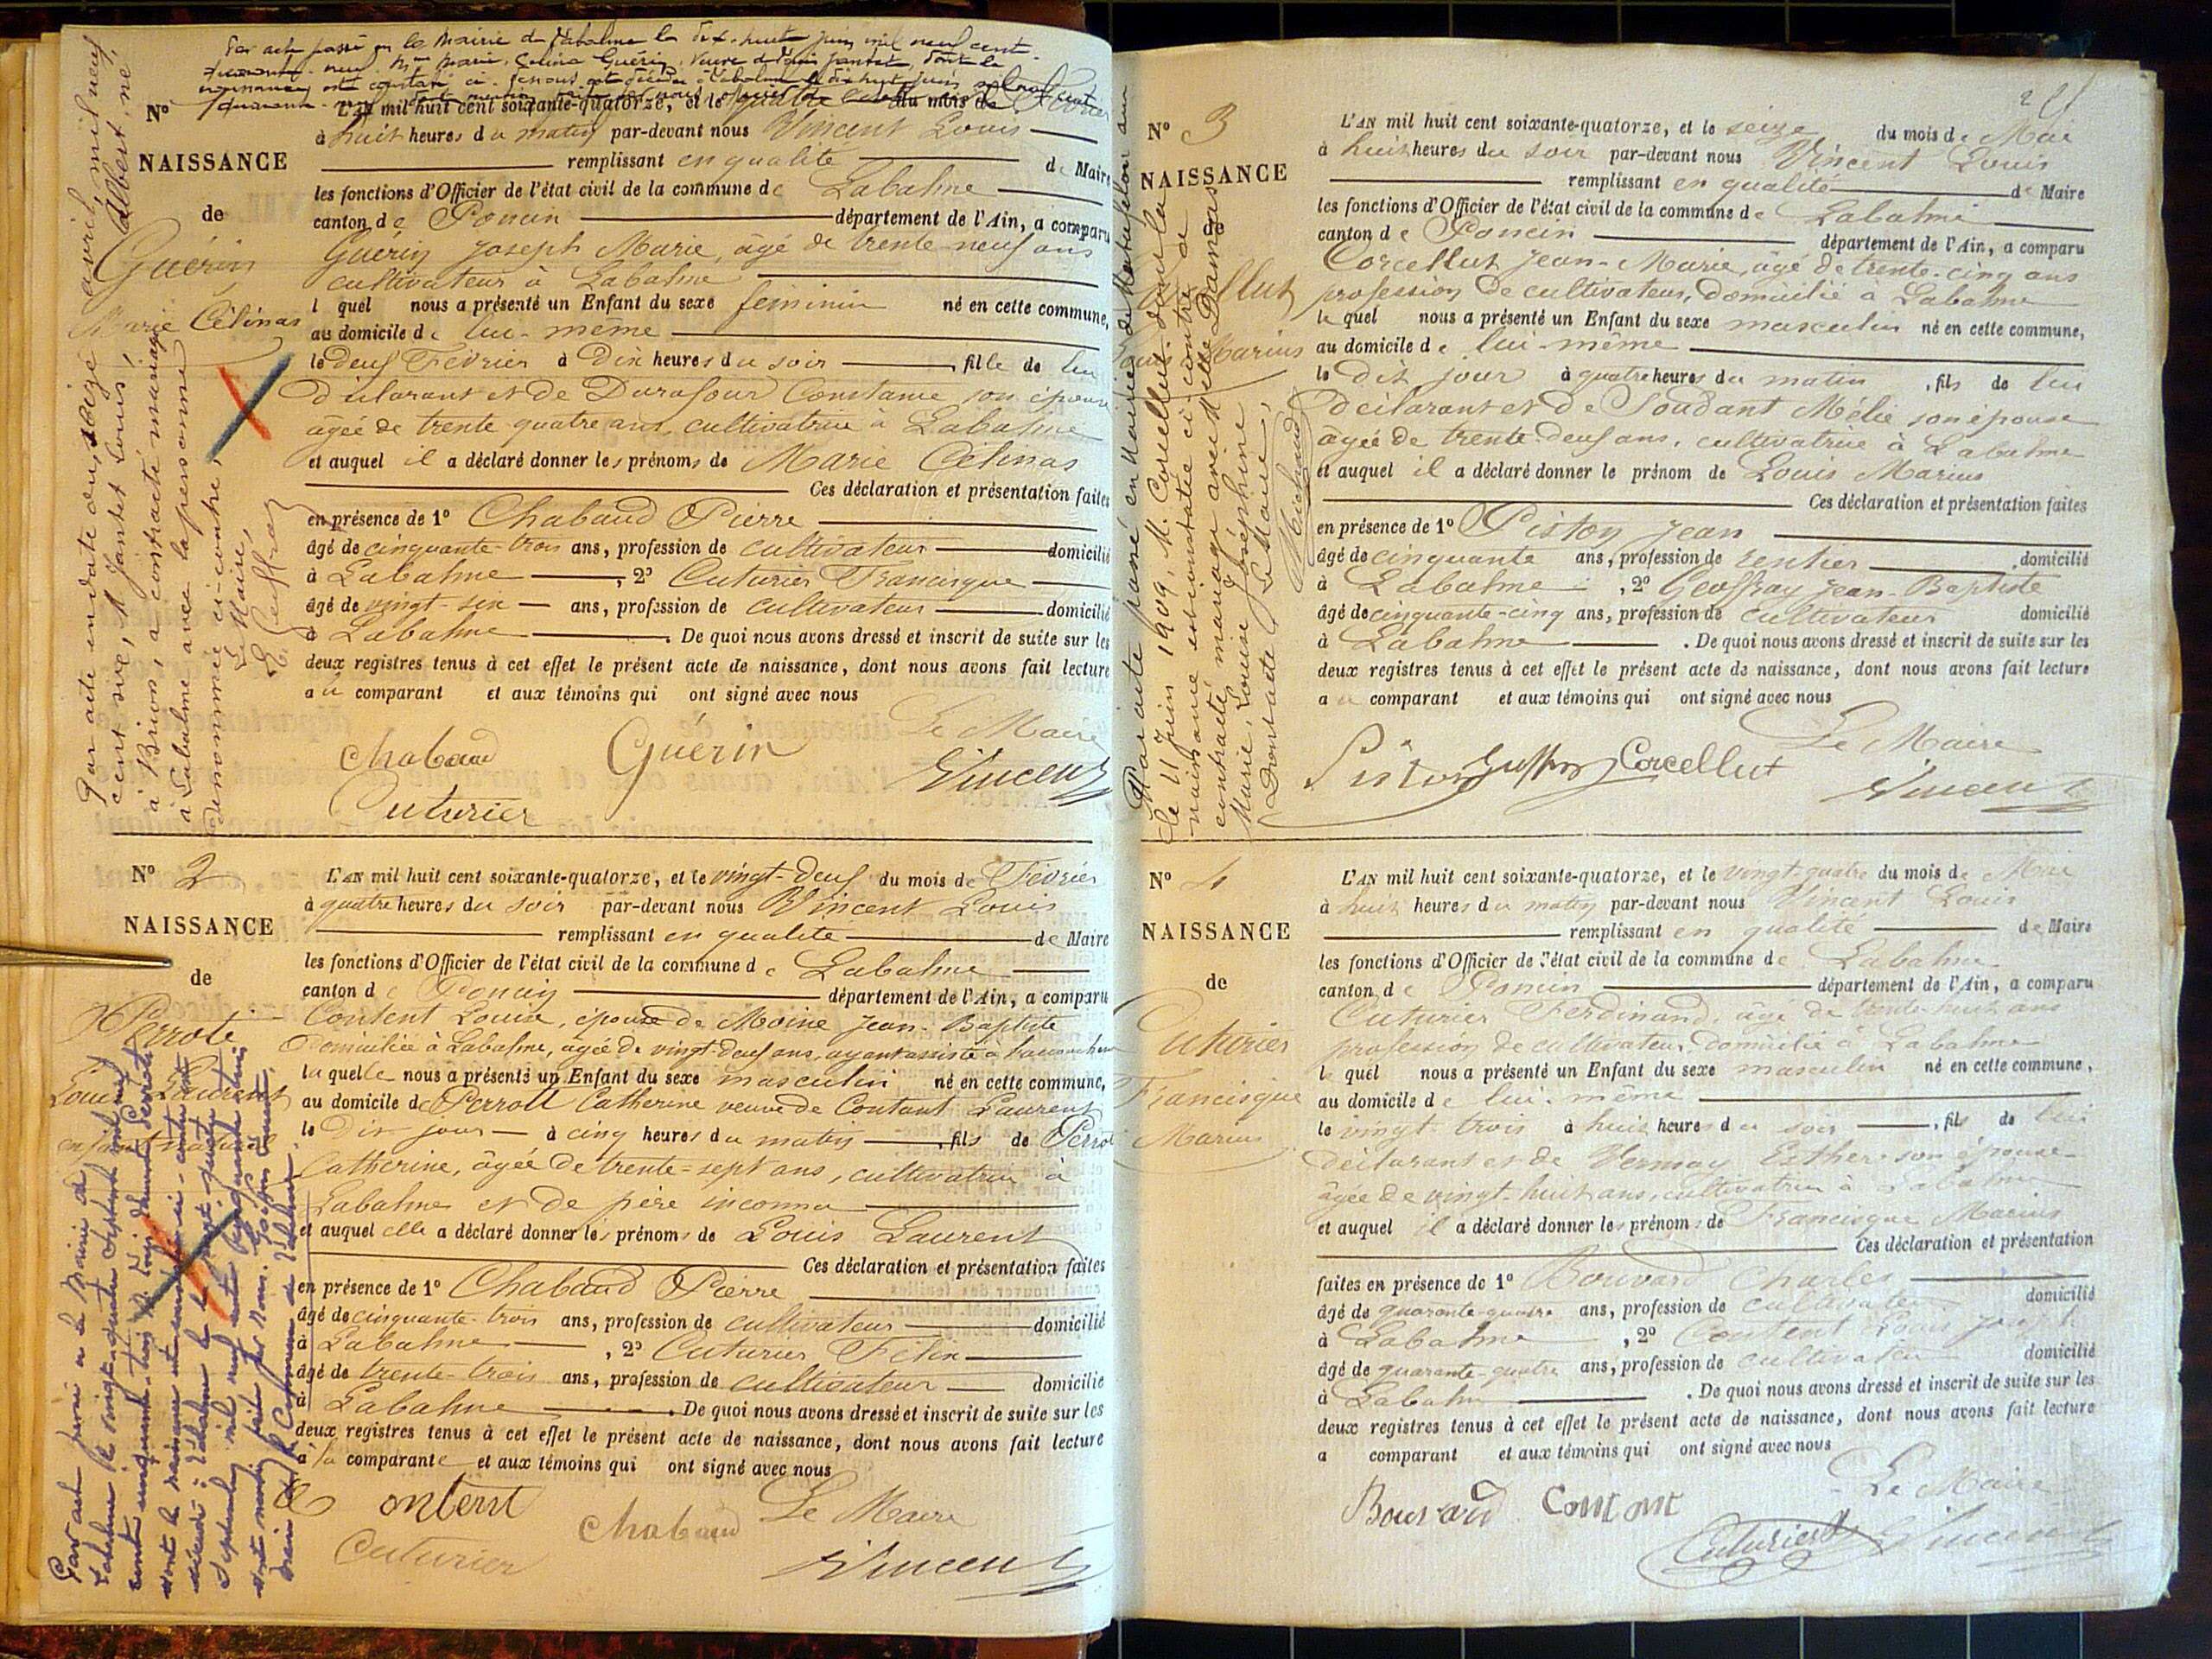 Par acte passé en la Mairie de Labalme le dix-huit juin mil neuf cent
quarante-neuf, Mme Marie, Celina Guérin, veuve de Louis Jantet, dont la
naissance est constatée ci-dessous est décédée à Labalme le dix huit juin mil neuf cent
quarante
N°
L'AN mil huit cent soixante-quatorze, et le quatre du mois de Février
à huit heures du matin par-devant nous Vincent Louis
NAISSANCE
remplissant en qualité de Maire
les fonctions d'Officier de l'état civil de la commune de Labalme
de
canton de Poncin département de l'Ain, a comparu
Guérin
Guérin Joseph Marie, âgé de trente-neuf ans
cultivateur à Labalme
lequel nous a présenté un Enfant du sexe féminin né en cette commune,
Marie Célinas
au domicile de lui-même
le deux Février à Dix heures du soir, fille de lui
déclarant et de Durafour Constance son épouse
âgée de trente quatre ans, cultivatrice à Labalme
et auquel il a déclaré donner les prénoms de Marie Célinas
Ces déclaration et présentation faites
en présence de 1° Chabaud Pierre
âgé de cinquante-trois ans, profession de cultivateur domicilié
à Labalme, 2° Cuturier Francisque
âgé de vingt-six ans, profession de cultivateur domicilié
à Labalme. De quoi nous avons dressé et inscrit de suite sur les
deux registres tenus à cet effet le présent acte de naissance, dont nous avons fait lecture
au comparant et aux témoins qui ont signé avec nous
Le Maire
Chabaud Guérin Vincent
Cuturier
Par acte en date du, seize avril, mil neuf
cent six, M Jantet Louis, Albert, né
à Brion, a contracté mariage
à Labalme avec la personne
dénommée ci-contre,
Le Maire,
N° 2
L'AN mil huit cent soixante-quatorze, et le vingt-deux du mois de Février
à quatre heures du soir par-devant nous Vincent Louis
NAISSANCE
remplissant en qualité de Maire
les fonctions d'Officier de l'état civil de la commune de Labalme
de
canton de Poncin département de l'Ain, a comparu
Perrote
Content Louise, épouse de Moine Jean-Baptiste
Domiciliée à Labalme, âgée de vingt-deux ans, ayant assisté à
laquelle nous a présenté un Enfant du sexe masculin né en cette commune,
Louis Laurent
au domicile de Perrott Catherine veuve de Contant Laurent
enfant naturel
le Dit jour à cinq heures du matin, fils de Perrot
Catherine, âgée de trente-sept ans, cultivatrice à
Labalme et de père inconnu
et auquel elle a déclaré donner les prénoms de Louis Laurent
Ces déclaration et présentation faites
en présence de 1° Chabaud Pierre
âgé de cinquante-trois ans, profession de cultivateur domicilié
à Labalme, 2° Cuturier Félix
âgé de trente-trois ans, profession de cultivateur domicilié
à Labalme. De quoi nous avons dressé et inscrit de suite sur les
deux registres tenus à cet effet le présent acte de naissance, dont nous avons fait lecture
à la comparante et aux témoins qui ont signé avec nous
Content Chabaud Le Maire
Cuturier Vincent
Par acte passé en la Mairie de
Labalme le vingt-quatre Septembre mil neuf
cent cinquante-trois M. Louis Laurent Perrote
dont la naissance est constatée ci-contre est
décédé à Labalme le vingt-quatre
Septembre mil neuf cent cinquante trois
Maire de la Commune de Labalme
2
N° 3
L'AN mil huit cent soixante-quatorze, et le seize du mois de Mai
à huit heures du soir par-devant nous Vincent Louis
NAISSANCE
remplissant en qualité de Maire
les fonctions d'Officier de l'état civil de la commune de Labalme
de
canton de Poncin département de l'Ain, a comparu
Corcellut
Corcellut Jean-Marie, âgé de trente-cinq ans
profession de cultivateur, domicilié à Labalme
lequel nous a présenté un Enfant du sexe masculin né en cette commune,
Louis Marius
au domicile de lui-même
le Dit jour à quatre heures du matin, fils de lui
déclarant et de Soudant Mélie son épouse
âgée de trente-deux ans, cultivatrice à Labalme
et auquel il a déclaré donner le prénom de Louis Marius
Ces déclaration et présentation faites
en présence de 1° Piston Jean
âgé de cinquante ans, profession de rentier, domicilié
à Labalme, 2° Geoffray Jean-Baptiste
âgé de cinquante-cinq ans, profession de cultivateur domicilié
à Labalme. De quoi nous avons dressé et inscrit de suite sur les
deux registres tenus à cet effet le présent acte de naissance, dont nous avons fait lecture
au comparant et aux témoins qui ont signé avec nous
Le Maire
Piston Geoffray Corcellut Vincent
Par acte passé en Mairie de Montufelon
le 11 Juin 1909, M. Corcellut dont la
naissance est constatée ci-contre a
contracté mariage avec Melle Damas
Marie, Louise Joséphine.
Dont acte, Le Maire,
Michaud
N° 4
L'AN mil huit cent soixante-quatorze, et le vingt-quatre du mois de Mai
à huit heures du matin par-devant nous Vincent Louis
NAISSANCE
remplissant en qualité de Maire
les fonctions d'Officier de l'état civil de la commune de Labalme
de
canton de Poncin département de l'Ain, a comparu
Cuturier
Cuturier Ferdinand, âgé de trente-huit ans
profession de cultivateur, domicilié à Labalme
lequel nous a présenté un Enfant du sexe masculin né en cette commune,
Francisque
au domicile de lui-même
Marius
le vingt-trois à huit heures du soir, fils de lui
déclarant et de Vernay Esther son épouse
âgée de vingt-huit ans, cultivatrice à Labalme
et auquel il a déclaré donner les prénoms de Francisque Marius
Ces déclaration et présentation
faites en présence de 1° Bouvard Charles
âgé de quarante-quatre ans, profession de cultivateur domicilié
à Labalme, 2° Content Louis
âgé de quarante-quatre ans, profession de cultivateur domicilié
à Labalme. De quoi nous avons dressé et inscrit de suite sur les
deux registres tenus à cet effet le présent acte de naissance, dont nous avons fait lecture
a comparant et aux témoins qui ont signé avec nous
Le Maire
Bouvard Contant
Cuturier Vincent